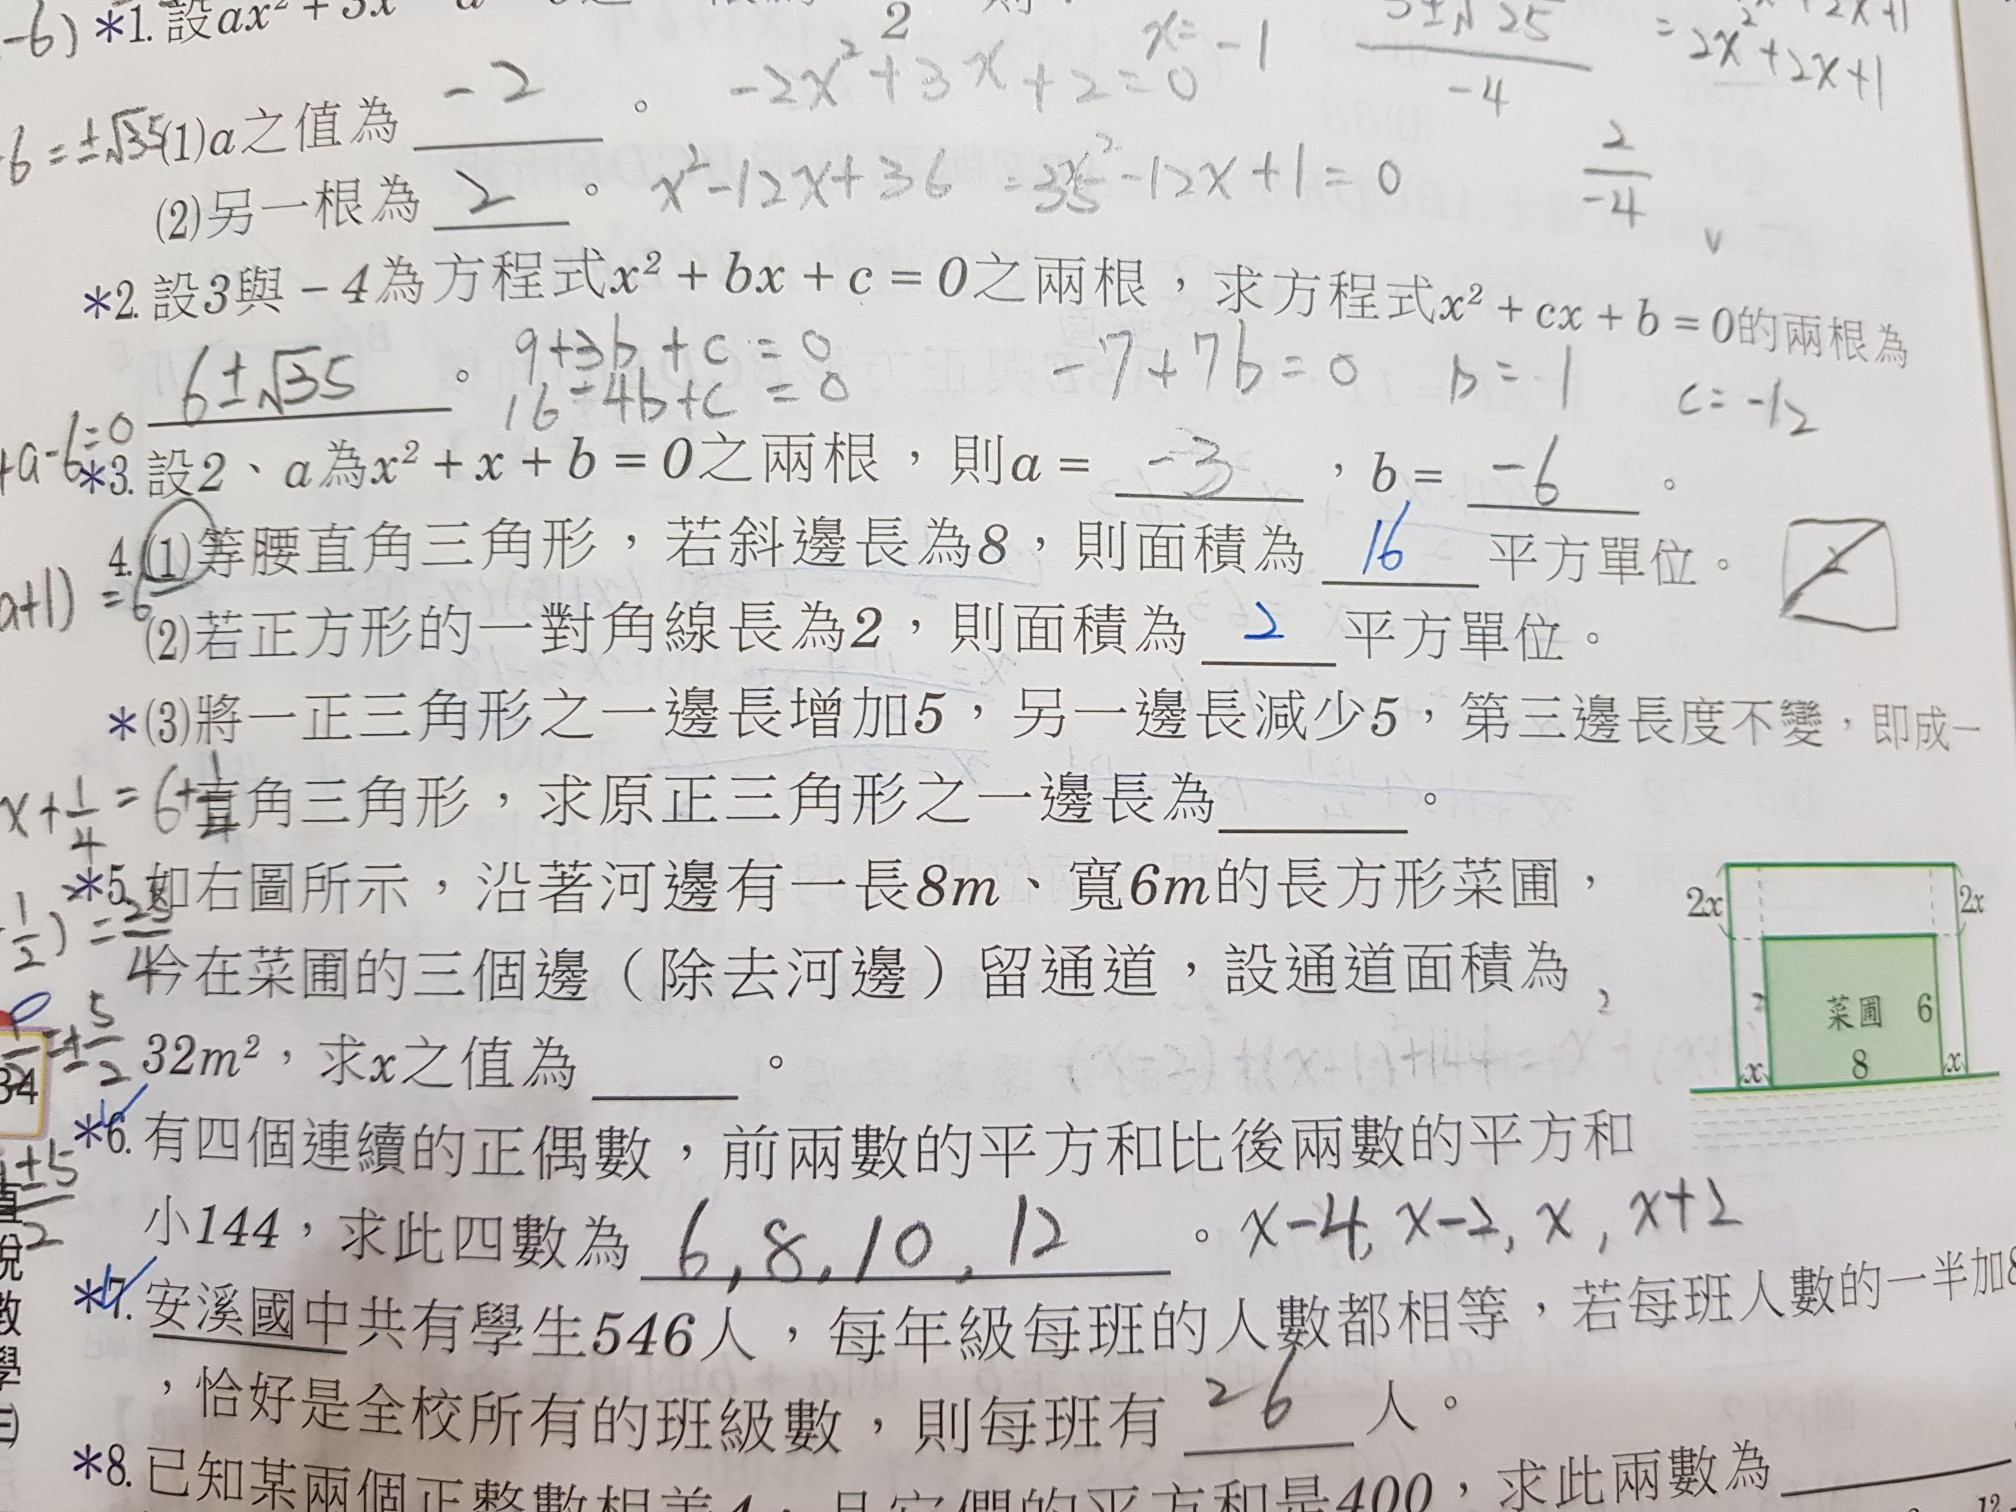 *1. 設ax² + 3x
2
x = -1
-6)
(1)a之值為 -2 。 -2x² + 3x + 2 = 0
-4
= 2x² + 2x + 1
6 = ±√35
(2)另一根為 2 。 x² - 12x + 36 = 35 x² - 12x + 1 = 0
2
-4
*2. 設3與-4為方程式x² + bx + c = 0之兩根，求方程式x² + cx + b = 0的兩根為
6±√35 。
9 + 3b + c = 0
16 - 4b + c = 0
-7 + 7b = 0 b = 1 c = -12
+a-6=0
*3. 設2、a為x² + x + b = 0之兩根，則a = -3 ，b = -6 。
4. (1)等腰直角三角形，若斜邊長為8，則面積為 16 平方單位。
2
a+1) = 6
(2)若正方形的一對角線長為2，則面積為 2 平方單位。
*(3)將一正三角形之一邊長增加5，另一邊長減少5，第三邊長度不變，即成一
直角三角形，求原正三角形之一邊長為 。
x + 1/4 = 6 + 1/4
*5. 如右圖所示，沿著河邊有一長8m、寬6m的長方形菜圃，
今在菜圃的三個邊（除去河邊）留通道，設通道面積為
32m²，求x之值為 。
2x 2x
菜圃 6
x 8 x
1/2) = 25/4
±5/2
34
*6. 有四個連續的正偶數，前兩數的平方和比後兩數的平方和
小144，求此四數為 6, 8, 10, 12 。 x-4, x-2, x, x+2
*7. 安溪國中共有學生546人，每年級每班的人數都相等，若每班人數的一半加8
，恰好是全校所有的班級數，則每班有 26 人。
*8. 已知某兩個正整數相差4，且它們的平方和是400，求此兩數為